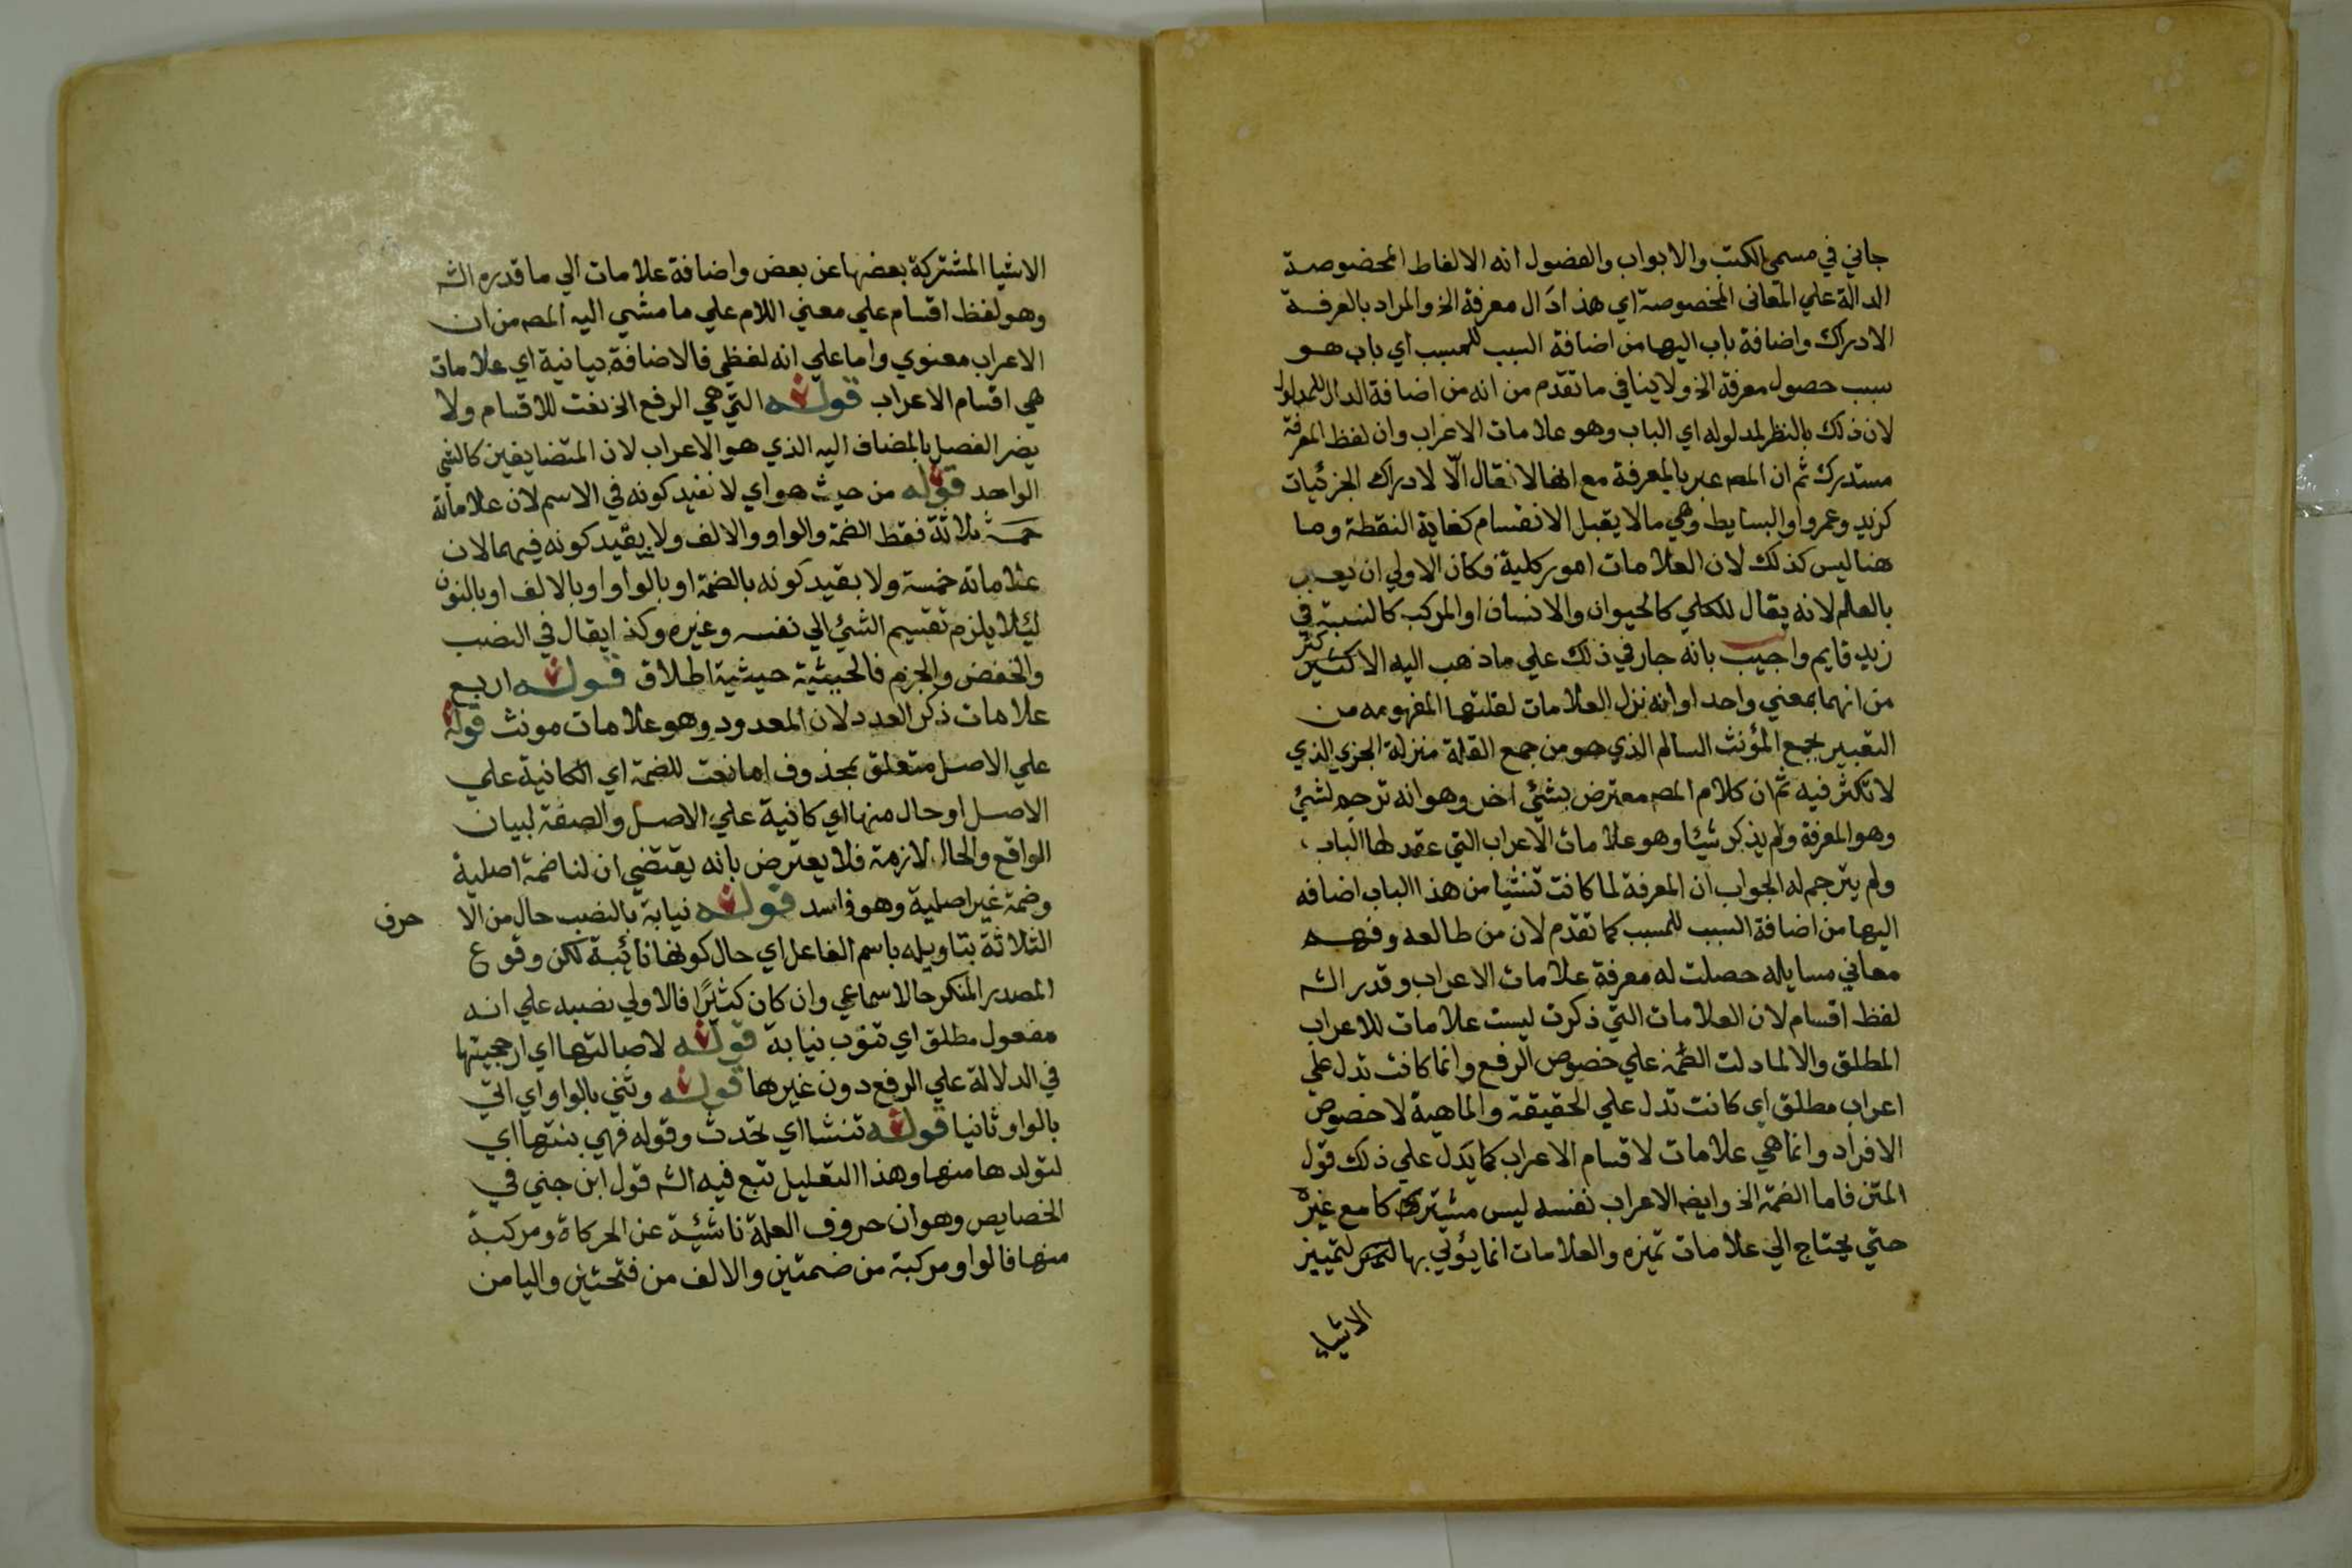 جاني في مسمي الكتب والابواب والفصول انه الالفاظ المخصوصة
الدالة علي المعاني المخصوصة اي هذا دال معرفة الخ والمراد بالمعرفة
الادراك واضافة باب اليها من اضافة السبب للمسبب اي باب هو
سبب حصول معرفة الخ ولا ينافي ما تقدم من انه من اضافة الدال للمدلول
لان ذلك بالنظر لمدلوله اي الباب وهو علامات الاعراب وان لفظ المعرفة
مستدرك ثم ان المص عبر بالمعرفة مع انها لا تقال الّا لادراك الجزئيات
كزيد وعمروا والبسايط وهي ما لا يقبل الانقسام كغاية النقطة وما
هنا ليس كذلك لان العلامات امور كلية فكان الاولي ان يعبر
بالعلم لانه يقال للكلي كالحيوان والانسان او المركب كالنسبة في
زيد قايم واجيب بانه جار في ذلك علي ما ذهب اليه الاكثر
من انهما بمعني واحد او انه نزل العلامات لقلتها المفهومه من
التعبير بجمع المؤنث السالم الذي هو من جمع القلة منزلة الجزي الذي
لا تكثر فيه ثم ان كلام المص معترض بشئ اخر وهو انه ترجم لشئ
وهو المعرفة ولم يذكر شيئا وهو علامات الاعراب التي عقد لها الباب
ولم يترجم له الجواب ان المعرفة لما كانت تنشيا من هذا الباب اضافه
اليها من اضافة السبب للمسبب كما تقدم لان من طالعه وفهم
معاني مسايله حصلت له معرفة علامات الاعراب وقدر الش
لفظ اقسام لان العلامات التي ذكرت ليست علامات للاعراب
المطلق والا لما دلت الضمة علي خصوص الرفع وانما كانت تدل علي
اعراب مطلق اي كانت تدل علي الحقيقة والماهية لا خصوص
الافراد وانما هي علامات لاقسام الاعراب كما يدل علي ذلك قول
المتن فاما الضمة الخ وايضا الاعراب نفسه ليس مشتركا مع غيره
حتي يحتاج الي علامات تميزه والعلامات انما يؤتي بها لتمييز
الاشياء
الاشيا المشتركة بعضها عن بعض واضافة علامات الي ما قدره الش
وهو لفظ اقسام علي معني اللام علي ما مشي اليه المص من ان
الاعراب معنوي واما علي انه لفظي فالاضافة بيانية اي علامات
هي اقسام الاعراب قوله التي هي الرفع الخ نعت للاقسام ولا
يضر الفصل بالمضاف اليه الذي هو الاعراب لان المتضايفين كالشي
الواحد قوله من حيث هو اي لا نقيد كونه في الاسم لان علاماته
ثلاثة فقط الضمة والواو والالف ولا يقيد كونه فيهما لان
علاماته خمسة ولا بقيد كونه بالضمة او بالواو او بالالف او بالنون
ليئلا يلزم تقسيم الشئ الي نفسه وغيره وكذا يقال في النصب
والخفض والجزم فالحيثية حيثية اطلاق قوله اربع
علامات ذكر العدد لان المعدود وهو علامات مونث قوله
علي الاصل متعلق بمحذوف اما نعت للضمة اي الكانية علي
الاصل او حال منها اي كانية علي الاصل والصفة لبيان
الواقع والحال لازمة فلا يعترض بانه يقتضي ان لنا ضمة اصلية
وضمة غير اصلية وهو فاسد قوله نيابة بالنصب حال من الا حرف
الثلاثة بتاويله باسم الفاعل اي حال كونها نائبة لكن وقوع
المصدر المنكر حالا سماعي وان كان كثيرًا فالاولي نصبه علي انه
مفعول مطلق اي تنوب نيابة قوله لاصالتها اي ارجحيتها
في الدلالة علي الرفع دون غيرها قوله وثني بالواو اي اتي
بالواو ثانيا قوله تنشا اي تحدث وقوله فهي بنتها اي
لتولدها منها وهذا التعليل تبع فيه الش قول ابن جني في
الخصايص وهو ان حروف العلة ناشئة عن الحركاة ومركبة
منها فالواو مركبة من ضمتين والالف من فتحتين واليا من